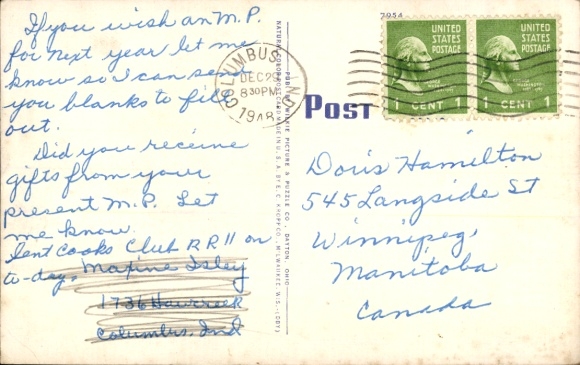 If you wish an M.P.
for next year let me
know so I can send
you blanks to fill
out.
Did you receive
gifts from your
present M.P. Let
me know.
Sent Cooks Club RR 11 on
to-day. Maxine Isley
1736
Columbus, Ind
COLUMBUS, IND.
DEC 29
8 30 PM
1948
POST
UNITED
STATES
POSTAGE
1 CENT 1
UNITED
STATES
POSTAGE
1 CENT 1
Doris Hamilton
545 Langside St
Winnipeg,
Manitoba
Canada